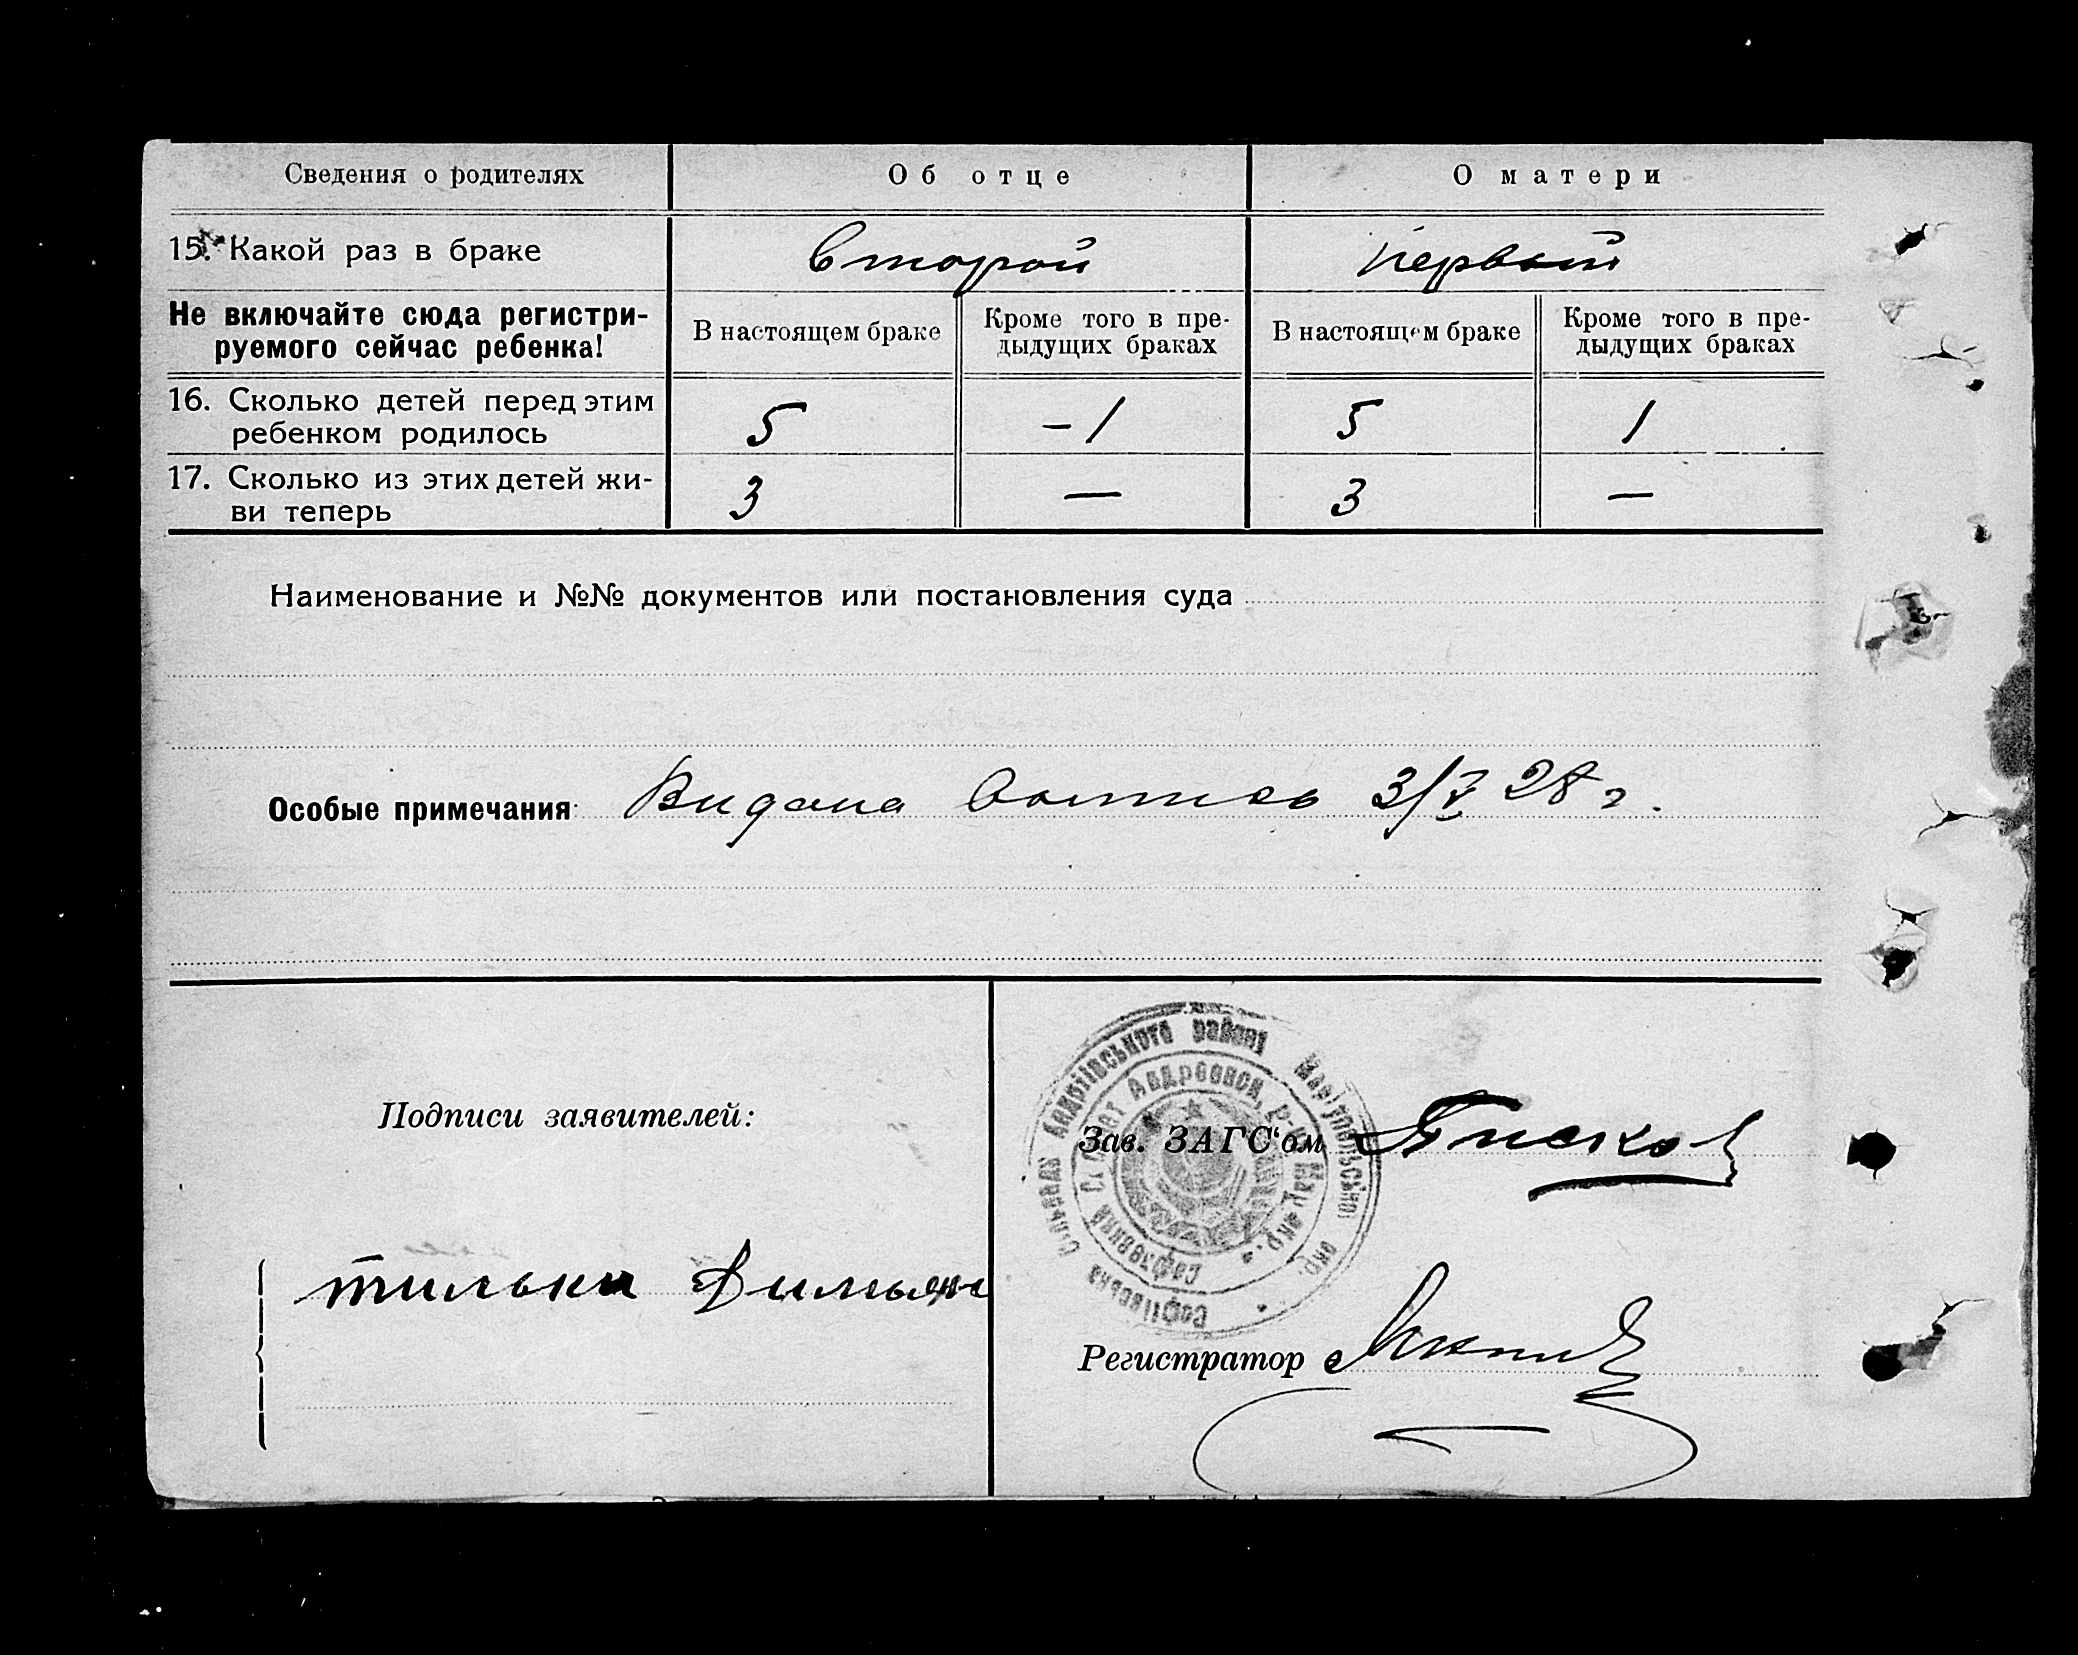 Сведения о родителях
Об отце
О матери
15. Какой раз в браке
второй
первый
Не включайте сюда регистри-
руемого сейчас ребенка!
В настоящем браке
Кроме того в пре-
дыдущих браках
В настоящем браке
Кроме того в пре-
дыдущих браках
16. Сколько детей перед этим
ребенком родилось
5
-1
5
1
17. Сколько из этих детей жи-
ви теперь
3
—
3
—
Наименование и №№ документов или постановления суда
Особые примечания: Видана 3/V 28 г.
Подписи заявителей:
Зав. ЗАГС'ом
Регистратор